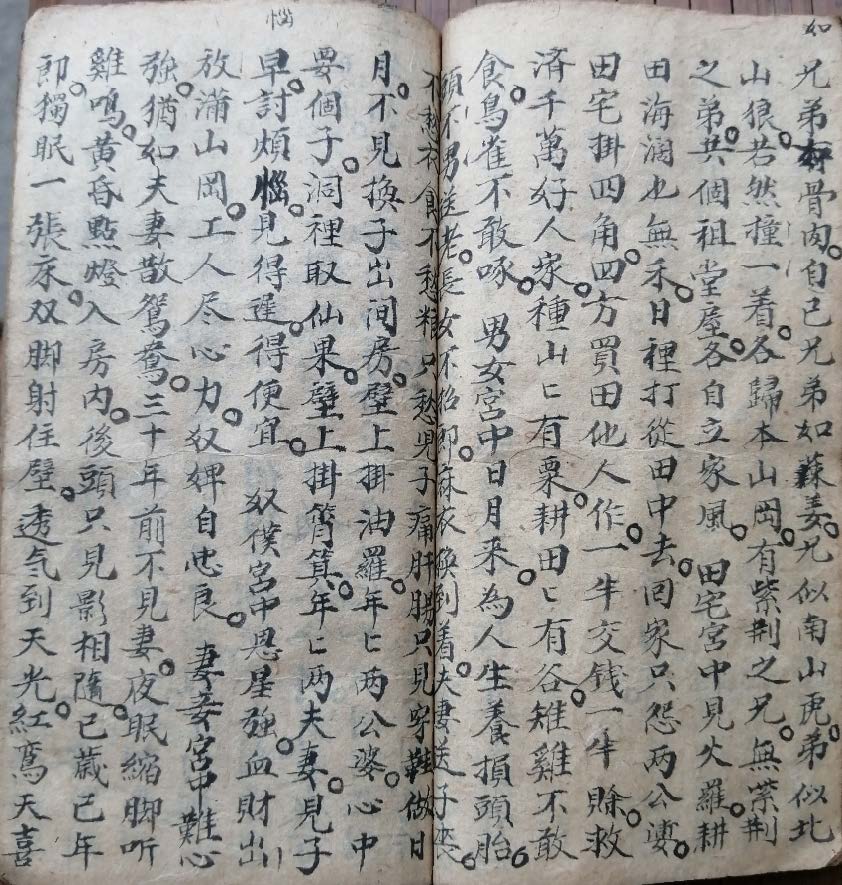 如
兄弟如骨肉自己兄弟如蘇姜兄似南山虎弟似北
山狼若然撞一着各歸本山岡有紫荆之兄無紫荆
之弟共個祖堂屋各自立家風 田宅宮中見火羅耕
田海濶也無禾日裡打從田中去回家只怨两公婆
田宅掛四角四方買田他人作一半交钱一半賒救
済千萬好人家種山匕有粟耕田匕有谷雉雞不敢
食鳥雀不敢啄 男女宮中日月来為人生養損頭胎
頭不男送老長女不
不愁衣食不愁粮只愁児子痛肝腸只見穿鞋做日
月不見換子出间房壁上掛油羅年匕两公婆心中
要個子洞裡取仙果壁上掛筲箕年匕两夫妻見子
惱
早討煩惱見得遅得便宜 奴僕宮中恩星强血財出
放满山岡工人尽心力奴婢自忠良 妻妾宮中難心
強猶如夫妻散鴛鴦三十年前不見妻夜眠縮脚听
雞鳴黄昏點燈入房内後頭只見影相隨己歳己年
即獨眠一張床双脚射住壁透气到天光紅鸞天喜